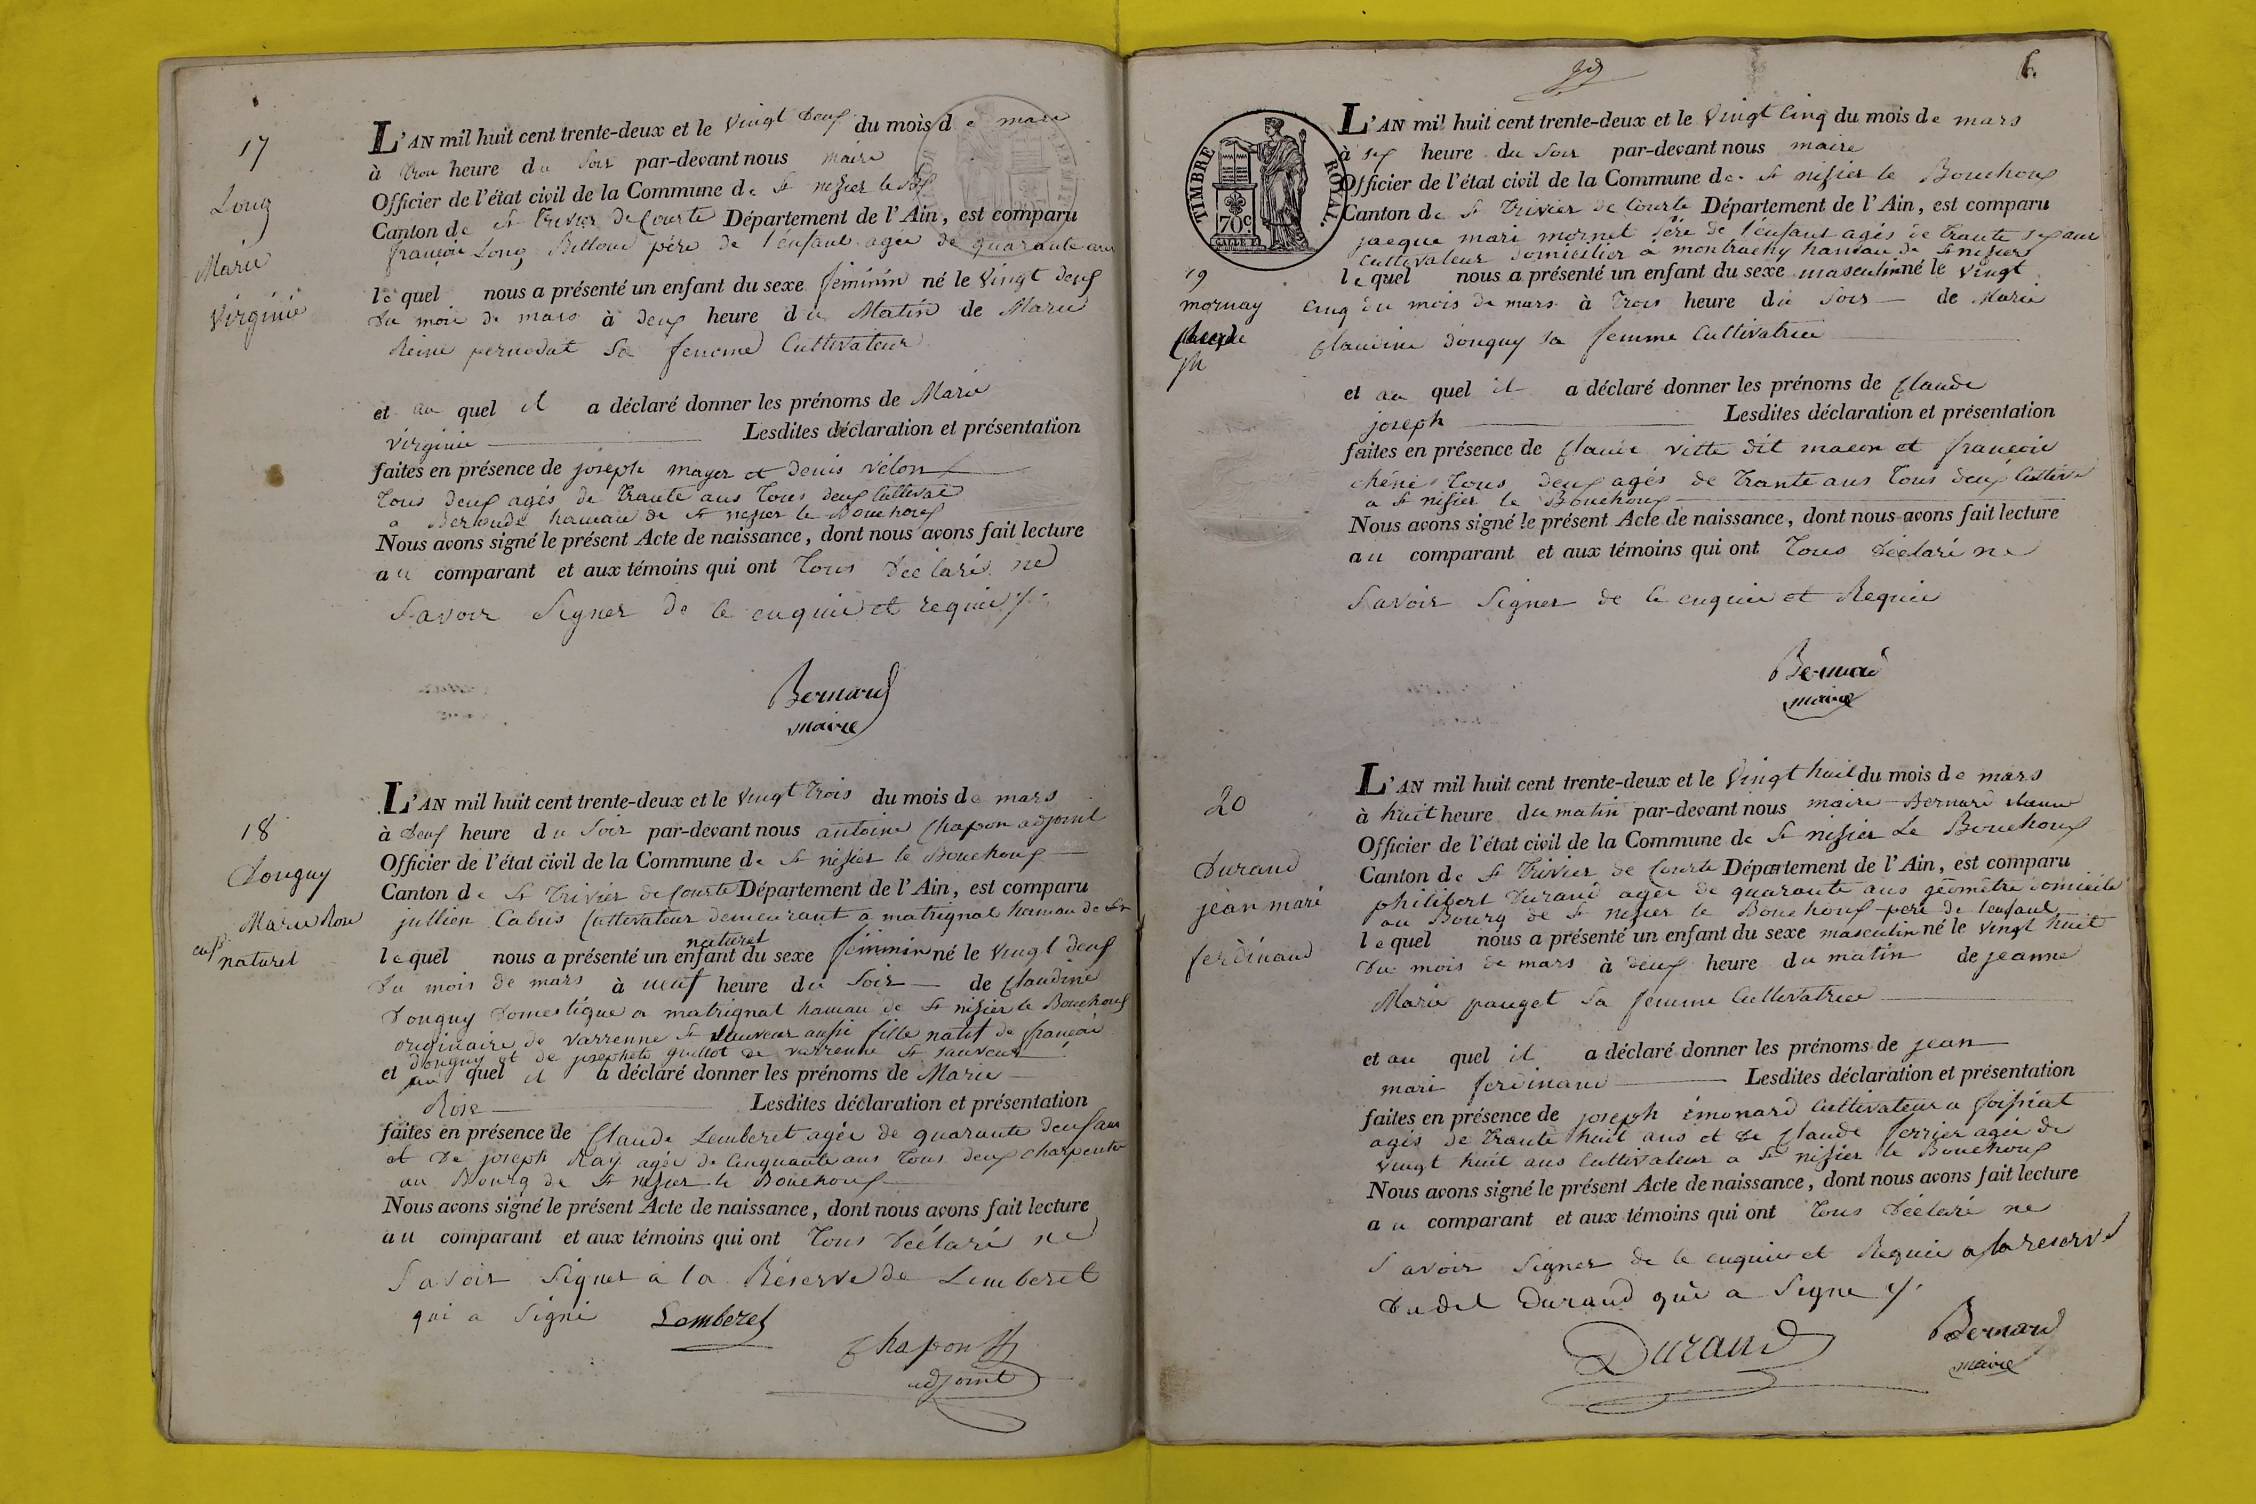 17
Long
Marie
Virginie
L'AN mil huit cent trente-deux et le Vingt Deux du mois de mars
à trou heure du Soir par-devant nous maire
Officier de l'état civil de la Commune de St nisier le
Canton de St Trivier de Courte Département de l'Ain, est comparu
françois Long père de l'enfant agée de quarante ans
le quel nous a présenté un enfant du sexe féminin né le Vingt deux
du mois de mars à deux heure du Matin de Marie
Reine pernodat Sa femme Cultivateur
et au quel il a déclaré donner les prénoms de Marie
Virginie Lesdites déclaration et présentation
faites en présence de joseph mayer et denis vélon
Tous deux agés de Trante ans Tous deux
a hameau de St nisier le Bouchoux
Nous avons signé le présent Acte de naissance, dont nous avons fait lecture
au comparant et aux témoins qui ont Tous Déclaré ne
Savoir Signer de ce enquie et requie
Bernard
maire
18
Donguy
Marie Rose
enft
naturel
L'AN mil huit cent trente-deux et le Vingt Trois du mois de mars
à Deux heure du Soir par-devant nous antoine Chapon adjoint
Officier de l'état civil de la Commune de St nisier le Bouchoux
Canton de St Trivier de Courte Département de l'Ain, est comparu
jullien Cabus Cultivateur demeurant a matrignat hameau de St
le quel nous a présenté un enfant naturel du sexe féminin né le Vingt deux
Du mois de mars à neuf heure du Soir de Claudine
Donguy Domestique a matrignat hameau de St nisier le Bouchoux
originaire de varrenne St Sauveur aussi fille natif de françois
donguy et de josephete guillot de varrenne St Sauveur
et au quel il a déclaré donner les prénoms de Marie
Rose Lesdites déclaration et présentation
faites en présence de Claude Lemberet agée de quarante deux ans
et De joseph Ray agée de Cinquante ans Tous deux charpentie
au Bourg de St nisier le Bouchoux
Nous avons signé le présent Acte de naissance, dont nous avons fait lecture
au comparant et aux témoins qui ont Tous Déclaré ne
Savoir Signer à la Réserve de Lemberet
qui a Signé Lemberet
Chapon
adjoint
6.
TIMBRE ROYAL.
70c
L'AN mil huit cent trente-deux et le Vingt Cinq du mois de mars
à six heure du Soir par-devant nous maire
Officier de l'état civil de la Commune de St nisier le Bouchoux
Canton de St Trivier de Courte Département de l'Ain, est comparu
jacque mari mornet père de l'enfant agés de Trante six ans
Cultivateur Domicilier à montrachy hameau de St nisier
19
mornay
le quel nous a présenté un enfant du sexe masculin né le Vingt
Cinq du mois de mars à Trois heure du Soir de Marie
Claudine Donguy Sa femme Cultivatrice
et au quel il a déclaré donner les prénoms de Claude
joseph Lesdites déclaration et présentation
faites en présence de Claude vitte dit macon et françois
chêne Tous deux agés de Trante ans Tous deux
a St nisier le Bouchoux
Nous avons signé le présent Acte de naissance, dont nous avons fait lecture
au comparant et aux témoins qui ont Tous Déclaré ne
Savoir Signer de ce enquie et Requie
Bernard
maire
20
Durand
jean mari
ferdinand
L'AN mil huit cent trente-deux et le Vingt huit du mois de mars
à huit heure du matin par-devant nous maire Bernard
Officier de l'état civil de la Commune de St nisier Le Bouchoux
Canton de St Trivier de Courte Département de l'Ain, est comparu
philibert Durand agée de quarante ans géomètre Domicilié
au Bourg de St nisier le Bouchoux père de l'enfant
le quel nous a présenté un enfant du sexe masculin né le Vingt huit
Du mois de mars à deux heure du matin de jeanne
Marie pauget Sa femme Cultivatrice
et au quel il a déclaré donner les prénoms de jean
mari ferdinand Lesdites déclaration et présentation
faites en présence de joseph émonard Cultivateur a foissiat
agés de Trante huit ans et de Claude ferrier agée de
Vingt huit ans Cultivateur a St nisier le Bouchoux
Nous avons signé le présent Acte de naissance, dont nous avons fait lecture
au comparant et aux témoins qui ont Tous Déclaré ne
Savoir Signer de ce enquie et Requie a la reserve
Dudit Durand qui a Signe
Durand
Bernard
maire